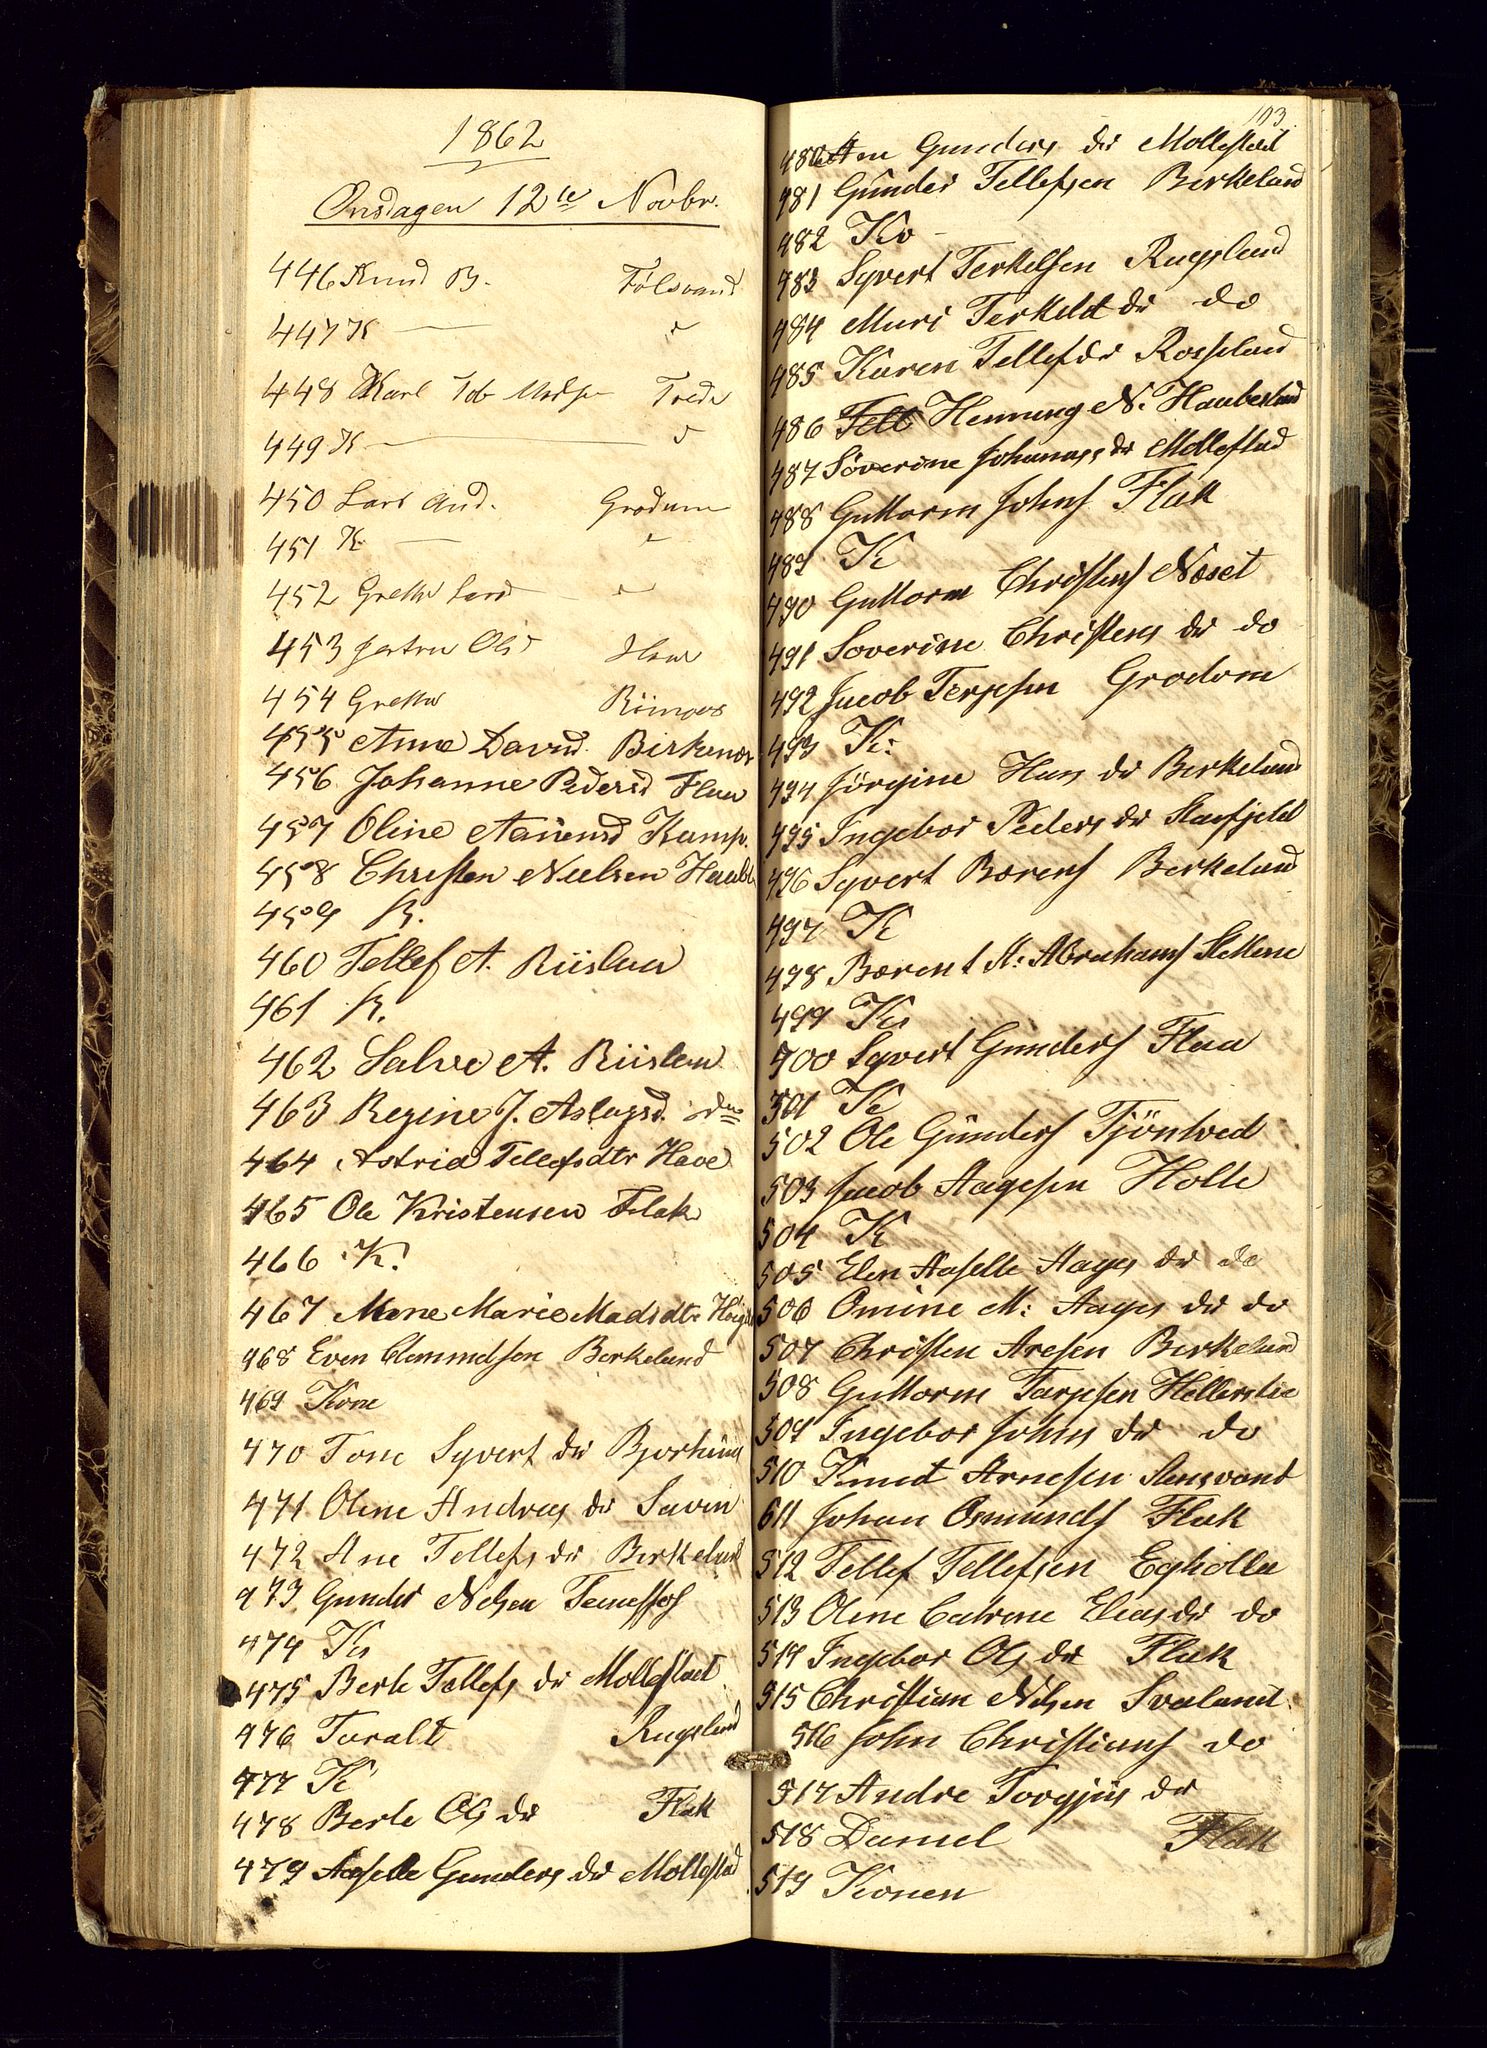 1862
Onsdagen 12te Novbr.
446 Knud B. Fölsvand
447 K — "
448 Karl Tob Trede
449 K — "
450 Lars And. Grodum
451 K — "
452 Grethe Lars — "
453 Ols
454 Grethe
455 Anne Davidsd. Birkenes
456 Johanne Pedersd Flaa
457 Oline Aanensd Kamp.
458 Christen Nielsen Haubl
459 K.
460 Tellef A. Riislaa
461 K.
462 Salve A. Riislaa
463 Regine J. Aslagsd. do
464 Astrid Tellefsdtr Have
465 Ole Kristensen Flak
466 K.
467 Mene Marie Madsdtr
468 Even Clemmedsen Berkeland
469 Kone
470 Tone Syvert dr
471 Oline Andreas dr Saven
472 Ane Tellefs dr Berkeland
473 Gunder Nelsen
474 Ko
475 Berte Tellefs dr Mollestaet
476 Taralt Rugsland
477 K
478 Berte Ols dr Flak
479 Aaselle Gunders dr Mollestad
103
480 Ane Gunders dr Mollestad
481 Gunder Tellefsen Berkeland
482 Ko -
483 Syvert Terkelsen Rugsland
484 Mari Terkelst dr do
485 Karen Tellef dr Rosseland
486 Henning N. Haubeland
487 Söverine Johanass dr Mollestad
488 Guttorm Johns Flak
489 K
490 Guttorm Christens Næset
491 Soverine Christens dr do
492 Jacob Terjesen Grodom
493 K:
494 Jörgine Hans dr Berkeland
495 Ingebor Peders dr
496 Syvert Bærens Berkeland
497 K
498 Bærent A: Abrahams Slettene
499 Ko
500 Syvert Gunders Flaa
501 K
502 Ole Gunders Tjönlved
503 Jacob Aagesen Holte
504 K
505 Elen Aaselle Aages dr do
506 Omine M: Aages dr do
507 Christen Aresen Berkeland
508 Guttorm Tarjesen Hellerslie
509 Ingebor Johns dr do
510 Knut Arnesen Stensvant
611 Johan Osmunds Flak
512 Tellef Tellefsen
513 Oline Catrine Elias dr do
514 Ingebor Ols dr Flak
515 Christian Nelsen Svaland
516 John Christians do
517 Andre Torgjus dr
518 Daniel Flak
519 Konen